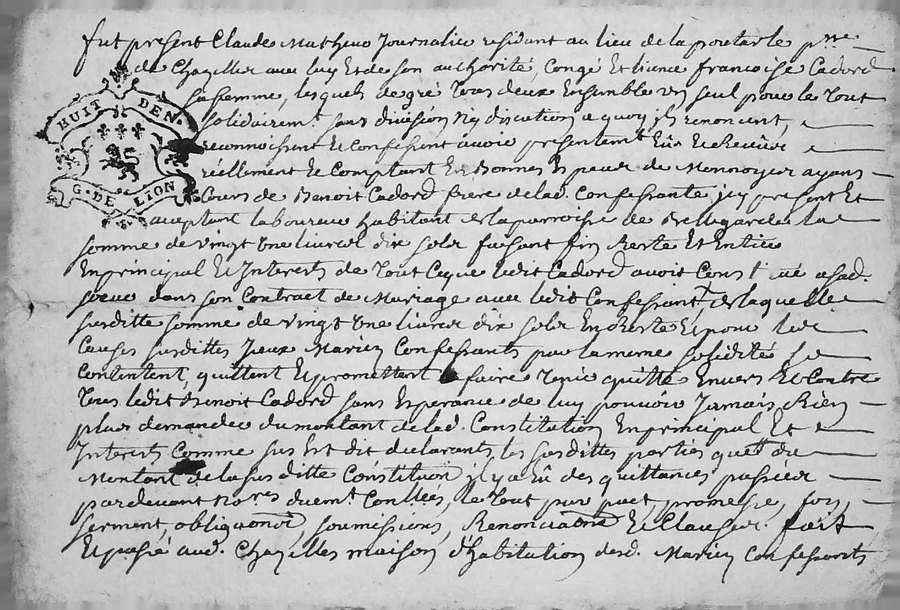 fut present Claude Matheuo Journalier residant au lieu de la poutarle psse
de Chazelles avec luy Et de son authorité, Congé Et licence francoise Cadord
sa femme, lesquels de gré Tous deux Ensemble un seul pour le Tout
HUIT DEN
solidairemt sans division, ny discution a quoy ils renoncent,
reconnoissent Et Confessent avoir presentemt Eus Et Receüs
réellement Et Comptant En Bonnes Especes de Monnoyes ayans
G. DE LION
Cours de Benoit Cadord frere de lad. Confessante, icy present Et
acceptant laboureur habitant de la parroisse de Bellegarde la
somme de vingt Une livres dix sols faisant fin Reste Et Entier
En principal Et Interests de Tout Ceque ledit Cadord avoit Constitué a sad.
soeur dans son Contract de Mariage avec ledit Confessant, de laquelle
susditte somme de vingt Une livres dix sols En Reste Et pour les
Causes susdittes Iceux Mariez Confessants par la meme solidité se
Contentent, quittent Et promettent faire Tenir quitte Envers Et Contre
Tous ledit Benoit Cadord sans Esperance de luy pouvoir Jamais Rien
plus demander du montant de lad. Constitution En principal Et
Interests Comme sus Est dit declarants, les susdittes parties que du
Montant de la susditte Constituon il y a Eû des quittances passées
pardevant Nores duemt Conllées, le Tout par pact, promesse, foy,
serment, obligaons, soumissions, Renonciaons Et Clauses. fait
Et passé aud. Chazelles maison d'habitation desd. Mariez Confessants